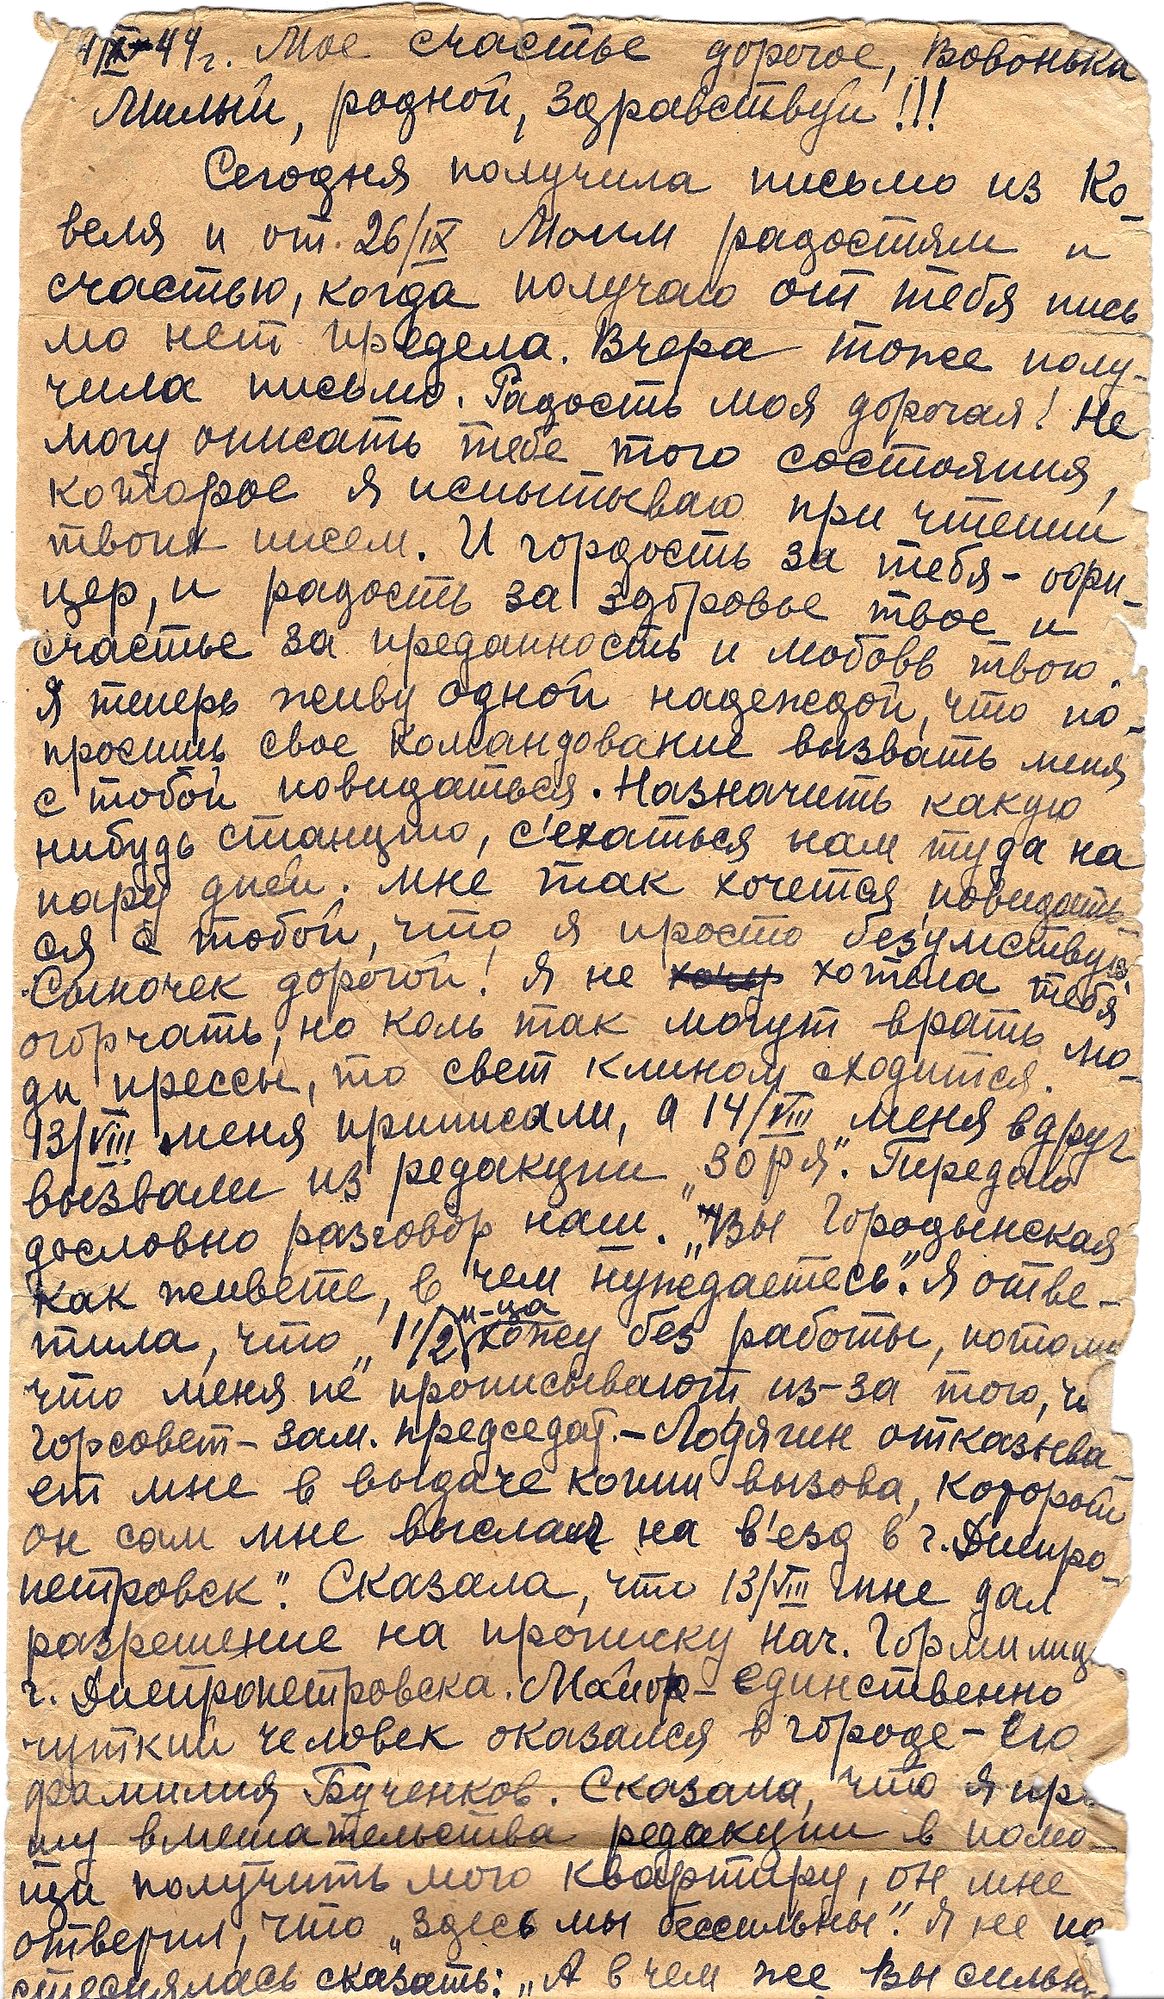 44г. Мое счастье дорогое, Вовонька
Милый, родной, здравствуй!!!
Сегодня получила письмо из Ко-
веля и от 26/IX Моим радостям и
счастью, когда получаю от тебя пись
мо нет предела. Вчера тоже полу-
чила письмо. Радость моя дорогая! Не
могу описать тебе того состояния,
которое я испытываю при чтении
твоих писем. И гордость за тебя - офи-
цер, и радость за здоровье твое и
счастье за преданность и любовь твою.
Я теперь живу одной надеждой, что по-
просишь свое командование вызвать меня
с тобой повидаться. Назначить какую
нибудь станцию, с'ехаться нам туда на
пару дней. Мне так хочется повидать-
ся с тобой, что я просто безумствую.
Сыночек дорогой! Я не хочу хотела тебя
огорчать, но коль так могут врать лю-
ди прессы, то свет клином сходится.
13/VIII меня прописали, а 14/VIII меня вдруг
вызвали из редакции „Зоря". Передаю
дословно разговор наш. „Вы Городынская
как живете, в чем нуждаетесь". Я отве-
тила, что „1 1/2 м-ца хожу без работы, потому
что меня не прописывают, из-за того, ч
горсовет - зам. председат. - Лодягин отказыва
ет мне в выдаче копии вызова, который
он сам мне выслал на в'езд в г. Днепро-
петровск". Сказала, что 13/VIII мне дал
разрешение на прописку нач. Гормилиц
г. Днепропетровска. Майор - единственно
чуткий человек оказался в городе - Его
фамилия Бученков. Сказала, что я пр
шу вмешательства редакции в помо-
щи получить мою квартиру, он мне
ответил, что „здесь мы бессильны". Я не по
стеснялась сказать: „А в чем же Вы сильны